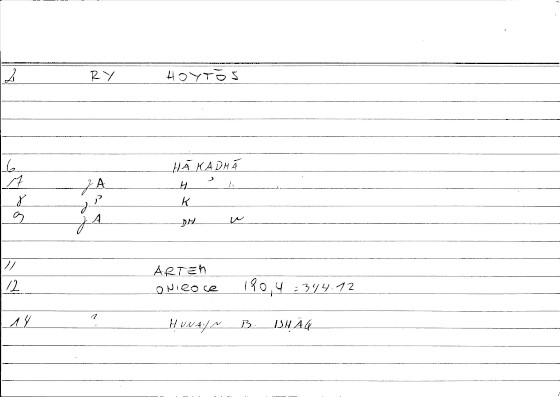 2 RY HOYTŌS
6 HĀKADHĀ
17 JA H
8 JP K
9 JA DH W
11 ARTEM
12 ONIROCR 190,4 = 344.12
14 ? HUNAYN B. ISHĀG